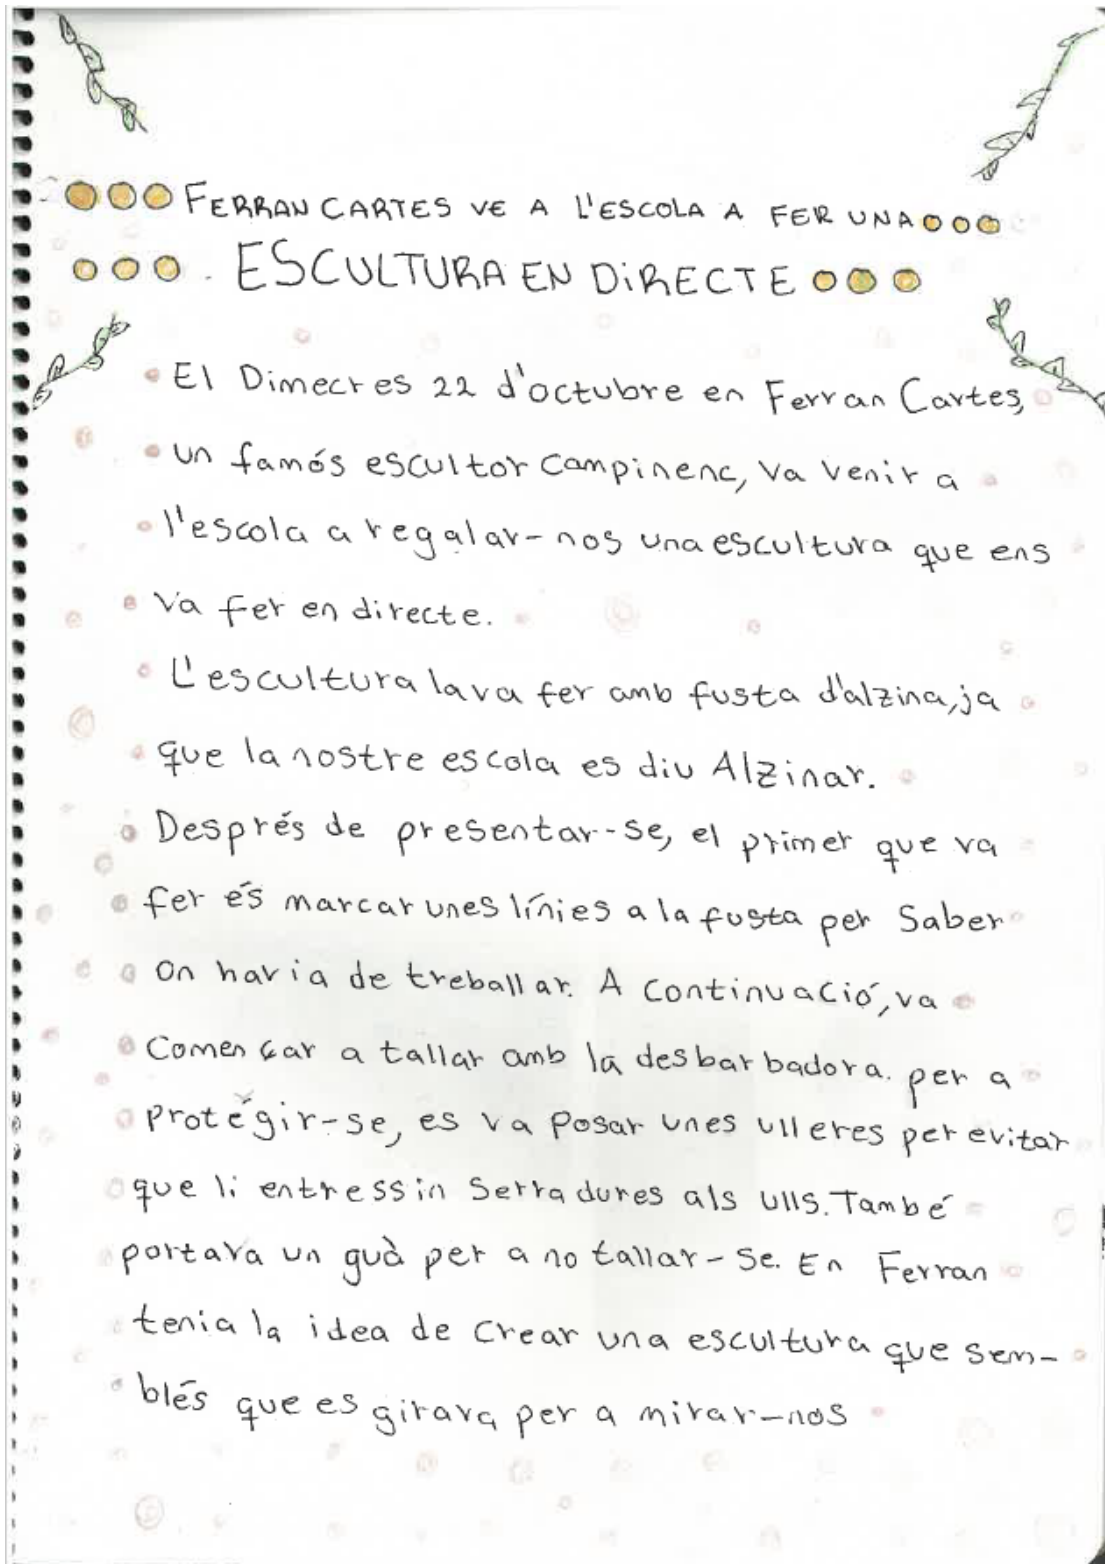 FERRAN CARTES VE A L'ESCOLA A FER UNA
ESCULTURA EN DIRECTE
El Dimecres 22 d'octubre en Ferran Cartes,
un famós escultor Campinenc, va venir a
l'escola a regalar-nos una escultura que ens
va fer en directe.
L'escultura la va fer amb fusta d'alzina, ja
que la nostre escola es diu Alzinar.
Després de presentar-se, el primer que va
fer és marcar unes línies a la fusta per saber
on havia de treballar. A continuació, va
començar a tallar amb la desbarbadora. per a
protegir-se, es va posar unes ulleres per evitar
que li entressin serradures als ulls. També
portava un guà per a no tallar-se. En Ferran
tenia la idea de crear una escultura que sem-
blés que es girava per a mirar-nos